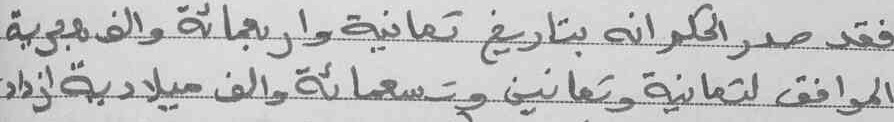 فقد صدر الحكم انه بتاريخ ثمانية واربعمائة والف هجرية
الموافق لثمانية وثمانين وتسعمائة والف ميلادية ازداد